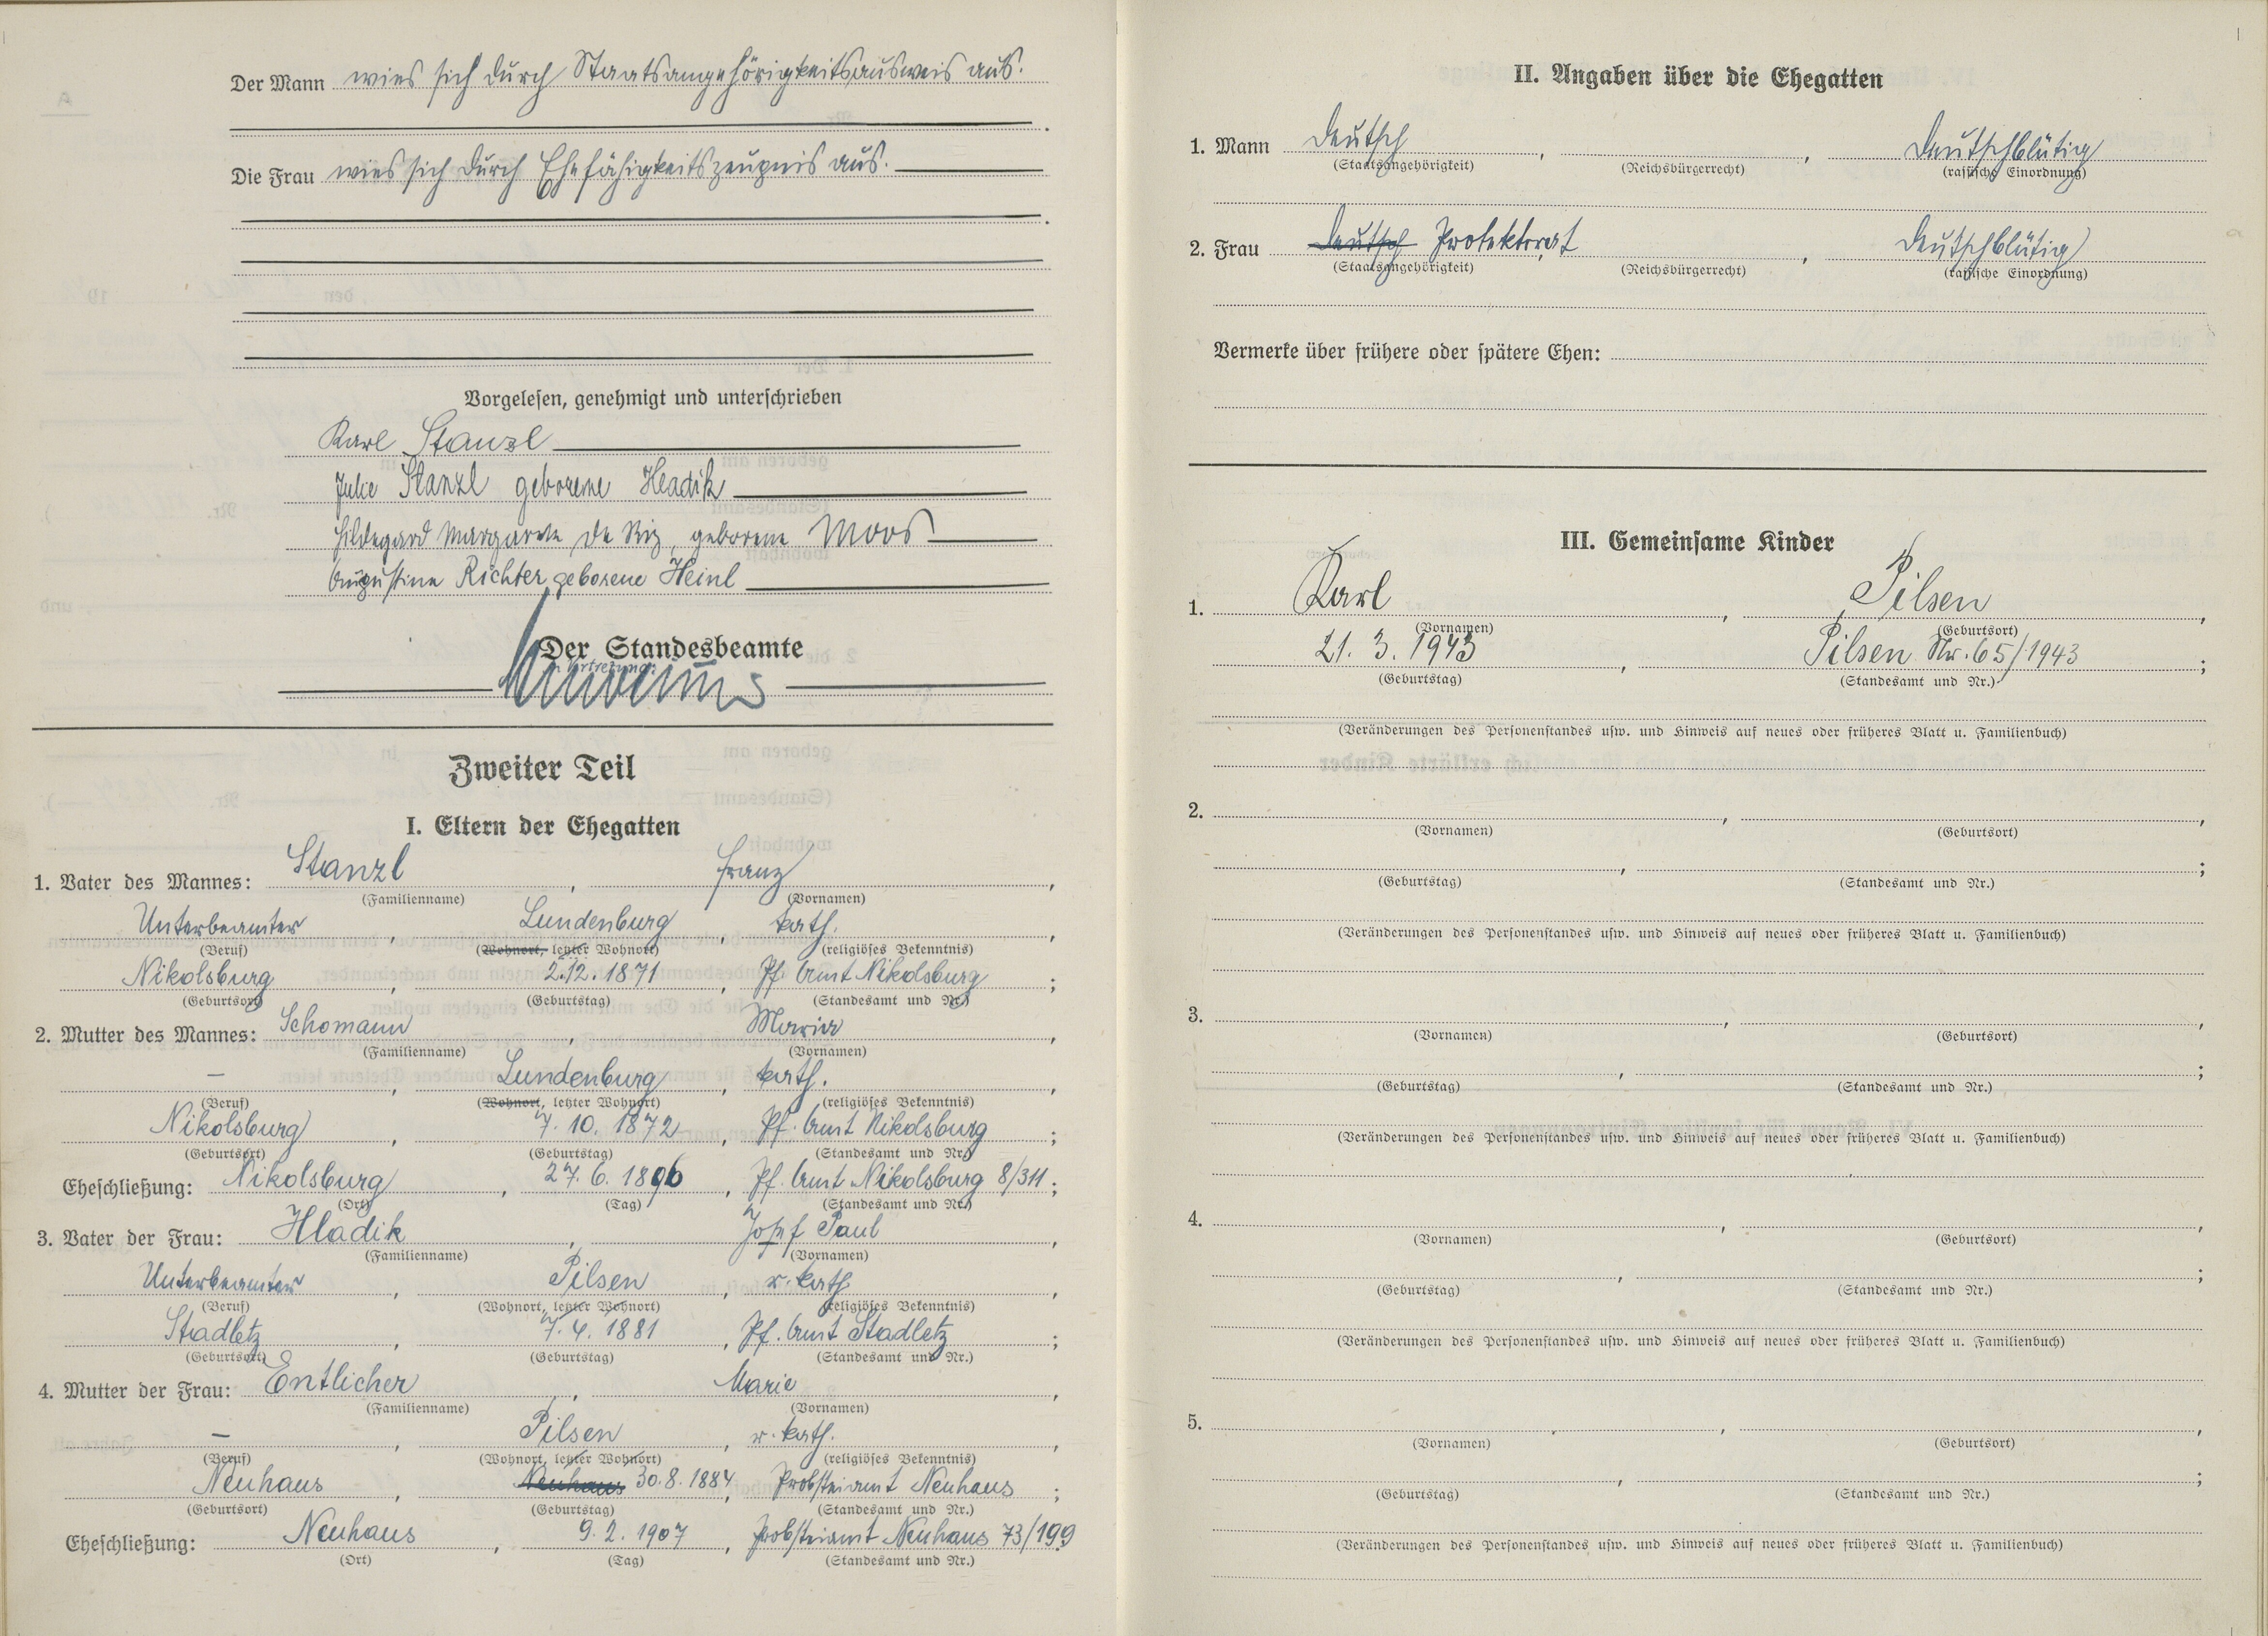 Der Mann wies sich durch Staatsangehörigkeitsausweis aus.
Die Frau wies sich durch Ehefähigkeitszeugnis aus.
Vorgelesen, genehmigt und unterschrieben
Karl Stanzl
Julie Stanzl geborene Hladik
Hildegard Margarete De Riz, geborene Moos
Augustine Richter geborene Heinl
Der Standesbeamte
In Vertretung:
Zweiter Teil
I. Eltern der Ehegatten
1. Vater des Mannes: Stanzl, Franz,
(Familienname) (Vornamen)
Unterbeamter, Lundenburg, kath.,
(Beruf) (Wohnort, letzter Wohnort) (religiöses Bekenntnis)
Nikolsburg, 2.12.1871, Pf. Amt Nikolsburg;
(Geburtsort) (Geburtstag) (Standesamt und Nr.)
2. Mutter des Mannes: Schomann, Maria,
(Familienname) (Vornamen)
–, Lundenburg, kath.,
(Beruf) (Wohnort, letzter Wohnort) (religiöses Bekenntnis)
Nikolsburg, 7.10.1872, Pf. Amt Nikolsburg;
(Geburtsort) (Geburtstag) (Standesamt und Nr.)
Eheschließung: Nikolsburg, 27.6.1896, Pf. Amt Nikolsburg 8/311;
(Ort) (Tag) (Standesamt und Nr.)
3. Vater der Frau: Hladik, Josef Paul,
(Familienname) (Vornamen)
Unterbeamter, Pilsen, r. kath.,
(Beruf) (Wohnort, letzter Wohnort) (religiöses Bekenntnis)
Stadletz, 7.4.1881, Pf. Amt Stadletz;
(Geburtsort) (Geburtstag) (Standesamt und Nr.)
4. Mutter der Frau: Entlicher, Marie,
(Familienname) (Vornamen)
–, Pilsen, r. kath.,
(Beruf) (Wohnort, letzter Wohnort) (religiöses Bekenntnis)
Neuhaus, Neuhaus 30.8.1884, Probsteiamt Neuhaus;
(Geburtsort) (Geburtstag) (Standesamt und Nr.)
Eheschließung: Neuhaus, 9.2.1907, Probsteiamt Neuhaus 73/199
(Ort) (Tag) (Standesamt und Nr.)
II. Angaben über die Ehegatten
1. Mann Deutsch, , Deutschblütig
(Staatsangehörigkeit) (Reichsbürgerrecht) (rassische Einordnung)
2. Frau Deutsch Protektorat, Deutschblütig
(Staatsangehörigkeit) (Reichsbürgerrecht) (rassische Einordnung)
Vermerke über frühere oder spätere Ehen:
III. Gemeinsame Kinder
1. Karl, Pilsen,
(Vornamen) (Geburtsort)
21.3.1943, Pilsen Nr. 65/1943;
(Geburtstag) (Standesamt und Nr.)
(Veränderungen des Personenstandes usw. und Hinweis auf neues oder früheres Blatt u. Familienbuch)
2. , ,
(Vornamen) (Geburtsort)
, ;
(Geburtstag) (Standesamt und Nr.)
(Veränderungen des Personenstandes usw. und Hinweis auf neues oder früheres Blatt u. Familienbuch)
3. , ,
(Vornamen) (Geburtsort)
, ;
(Geburtstag) (Standesamt und Nr.)
(Veränderungen des Personenstandes usw. und Hinweis auf neues oder früheres Blatt u. Familienbuch)
4. , ,
(Vornamen) (Geburtsort)
, ;
(Geburtstag) (Standesamt und Nr.)
(Veränderungen des Personenstandes usw. und Hinweis auf neues oder früheres Blatt u. Familienbuch)
5. , ,
(Vornamen) (Geburtsort)
, ;
(Geburtstag) (Standesamt und Nr.)
(Veränderungen des Personenstandes usw. und Hinweis auf neues oder früheres Blatt u. Familienbuch)